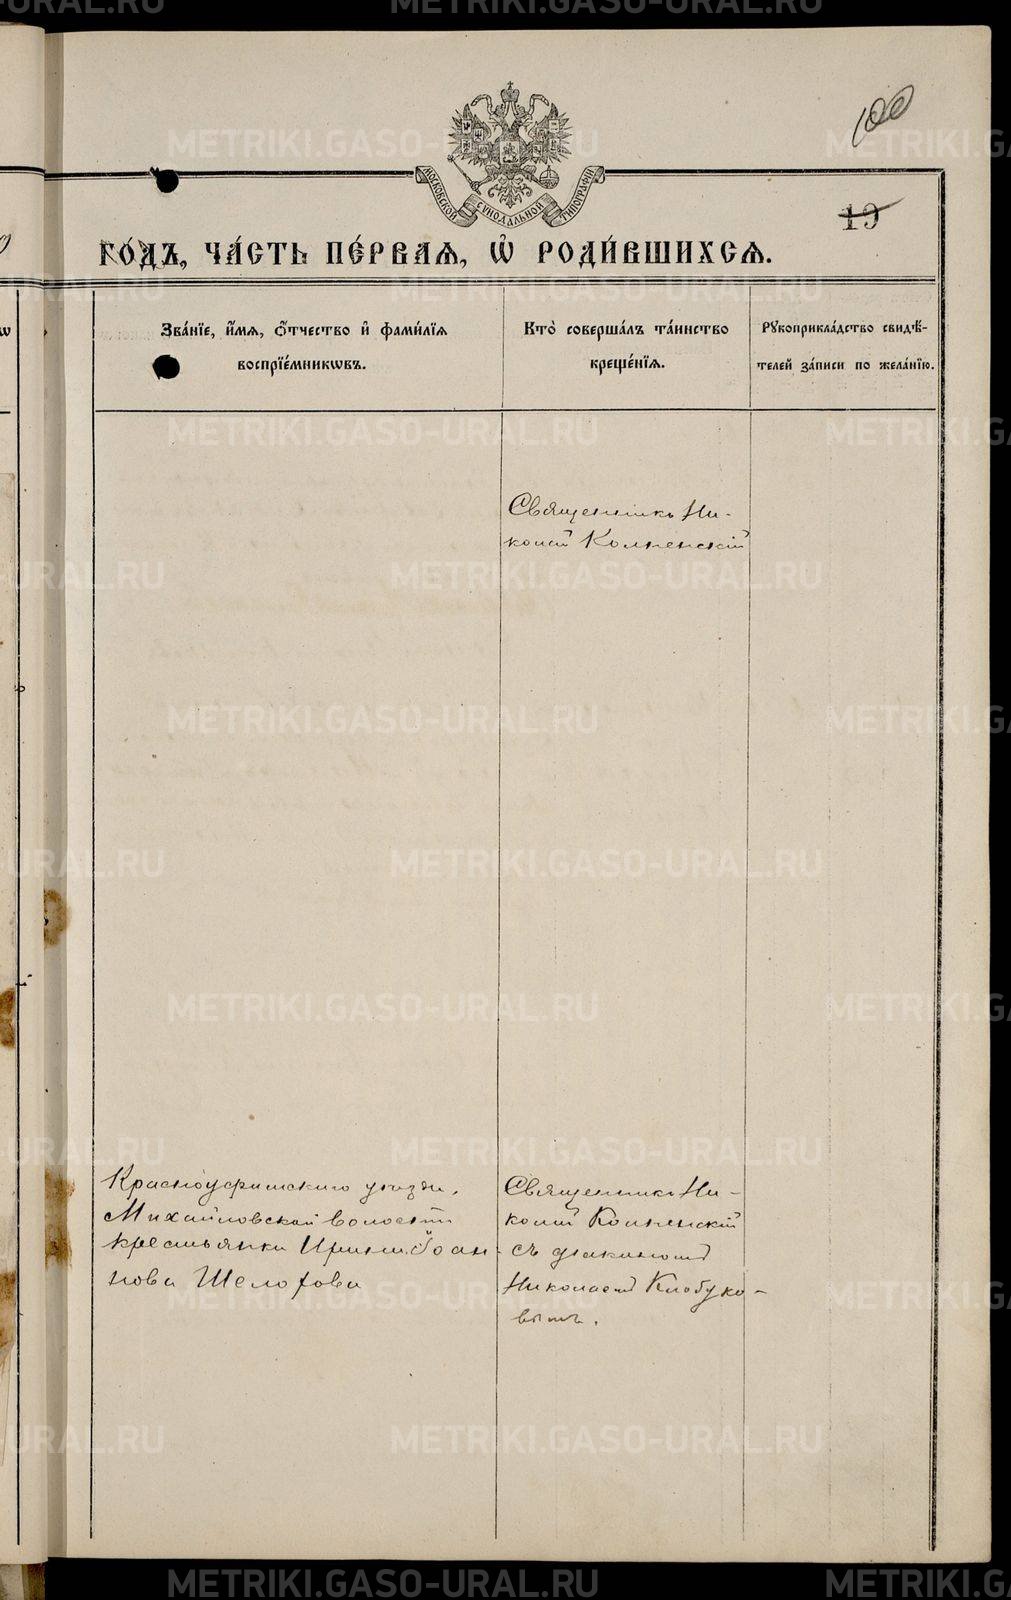 100
19
МОСКОВСКОЙ СѴНОДАЛЬНОЙ ТИПОГРАФІИ
го́дъ, ча́сть пе́рваѧ, ѡ҆ роди́вшихсѧ.
Зва́нїе, и҆́мѧ, ѻ҆́тчество и҆ фами́лїѧ
воспрїе́мникѡвъ.
Кто̀ соверша́лъ та́инство
креще́нїѧ.
Рꙋкоприкла́дство свидѣ́-
телей за́писи по жела́нїю.
Священникъ Ни-
колай
Красноуфимскаго уѣзда,
Михайловской волости
крестьянка Ирина Іоан-
нова Шелохова
Священникъ Ни-
колай
съ діакономъ
Николаемъ Клобуко-
вымъ.
METRIKI.GASO-URAL.RU